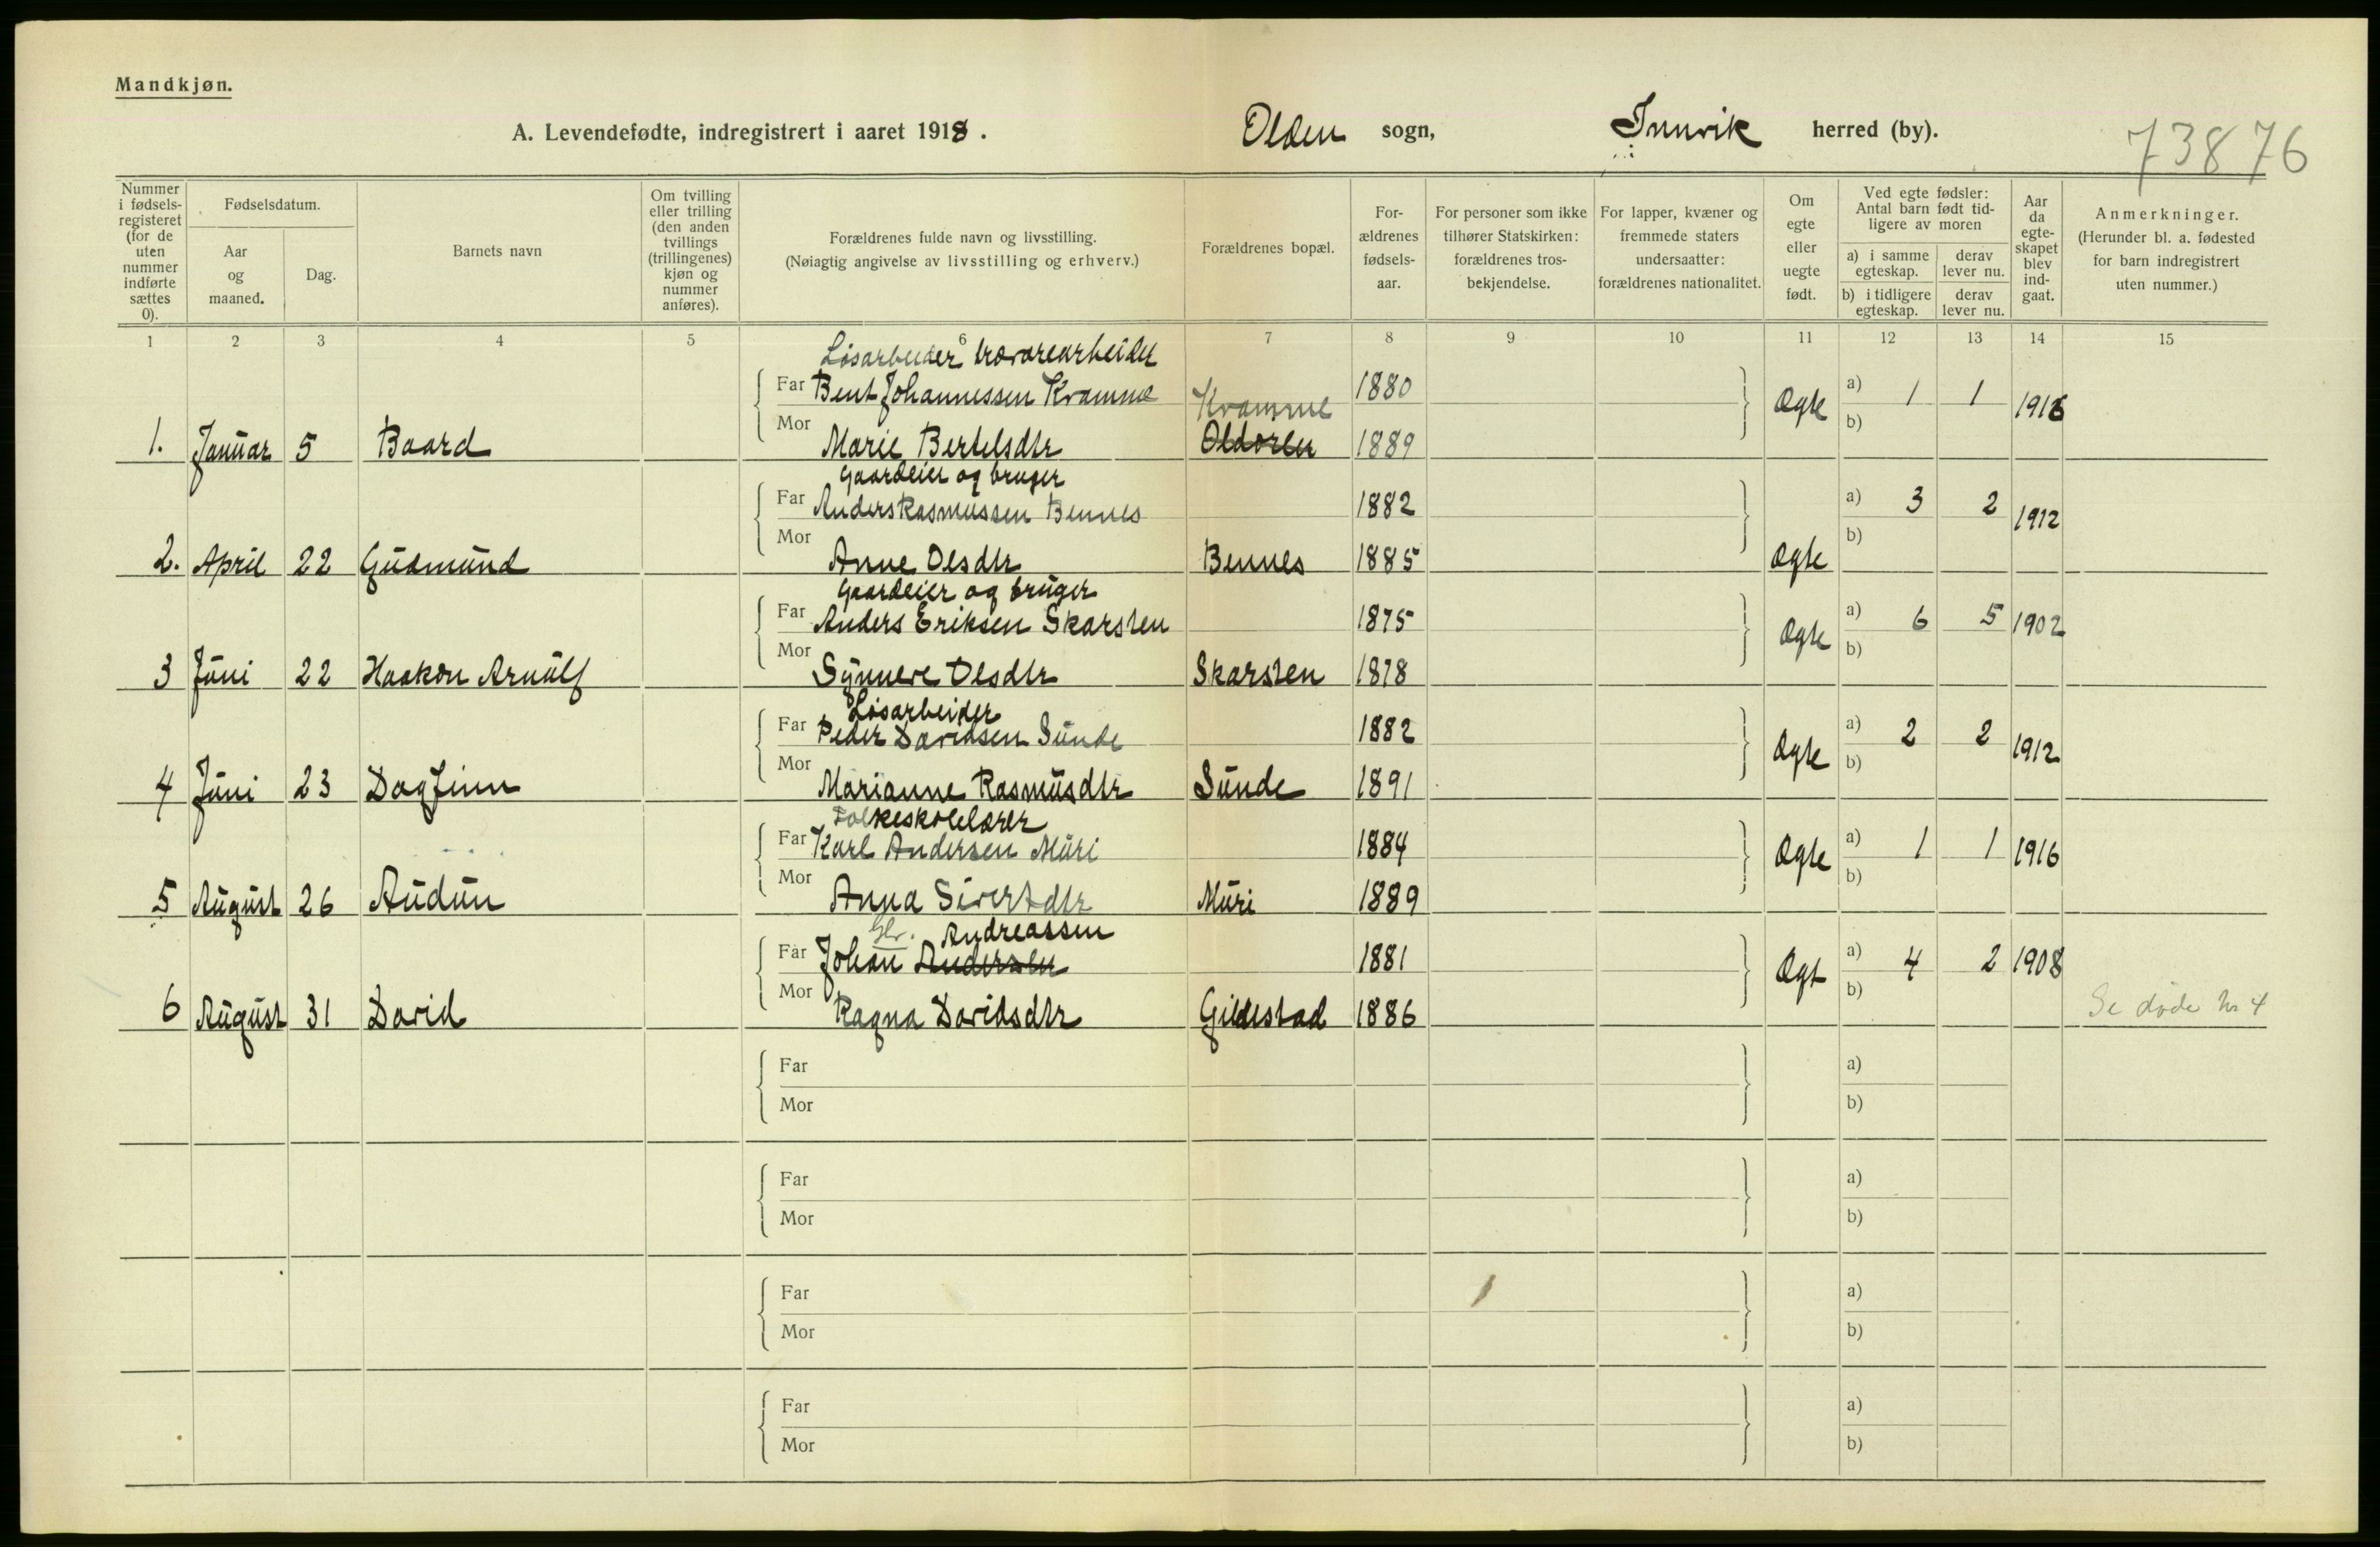 Mandkjøn.
A. Levendefødte, indregistrert i aaret 1918. Olden sogn, Innvik herred (by).
73876
Nummer i fødsels-registeret (for de uten nummer indførte sættes 0).
Fødselsdatum.
Aar og maaned.
Dag.
Barnets navn
Om tvilling eller trilling (den anden tvillings (trillingenes) kjøn og nummer anføres).
Forældrenes fulde navn og livsstilling.
(Nøiagtig angivelse av livsstilling og erhverv.)
Forældrenes bopæl.
For-ældrenes fødsels-aar.
For personer som ikke tilhører Statskirken: forældrenes tros-bekjendelse.
For lapper, kvæner og fremmede staters undersaatter: forældrenes nationalitet.
Om egte eller uegte født.
Ved egte fødsler: Antal barn født tid-ligere av moren
a) i samme egteskap.
derav lever nu.
b) i tidligere egteskap.
derav lever nu.
Aar da egte-skapet blev ind-gaat.
Anmerkninger.
(Herunder bl. a. fødested for barn indregistrert uten nummer.)
1 2 3 4 5 6 7 8 9 10 11 12 13 14 15
Løsarbeider trævarearbeider
Far Bent Johannessen Kramme Kramme 1880 Ægte a) 1 1 1916
1. Januar 5 Baard Mor Marie Bertelsdtr Oldøren 1889 b)
Gaardeier og bruger
Far Anders Rasmussen Bennes 1882 a) 3 2 1912
2. April 22 Gudmund Mor Anne Olsdtr Bennes 1885 Ægte b)
Gaardeier og bruger
Far Anders Eriksen Skarsten 1875 Ægte a) 6 5 1902
3 Juni 22 Haakon Arnulf Mor Synneve Olsdtr Skarsten 1878 b)
Løsarbeider
Far Peder Davidsen Sunde 1882 Ægte a) 2 2 1912
4 Juni 23 Dagfinn Mor Marianne Rasmusdtr Sunde 1891 b)
Folkeskolelærer
Far Karl Andersen Muri 1884 Ægte a) 1 1 1916
5 August 26 Audun Mor Anna Sivertdtr Muri 1889 b)
Gbr. Andreassen
Far Johan Andersen 1881 Ægt a) 4 2 1908
6 August 31 David Mor Ragna Davidsdtr Gildestad 1886 b) Se døde nr 4
Far a)
Mor b)
Far a)
Mor b)
Far a)
Mor b)
Far a)
Mor b)